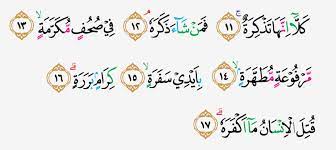 كَلَّآ اِنَّهَا تَذْكِرَةٌ ۚ ١١ فَمَنْ شَاۤءَ ذَكَرَهٗ ۘ ١٢ فِيْ صُحُفٍ مُّكَرَّمَةٍ ۙ ١٣
مَّرْفُوْعَةٍ مُّطَهَّرَةٍ ۢ ۙ ١٤ بِاَيْدِيْ سَفَرَةٍ ۙ ١٥ كِرَامٍ ۢ بَرَرَةٍ ۗ ١٦
قُتِلَ الْاِنْسَانُ مَآ اَكْفَرَهٗ ۗ ١٧